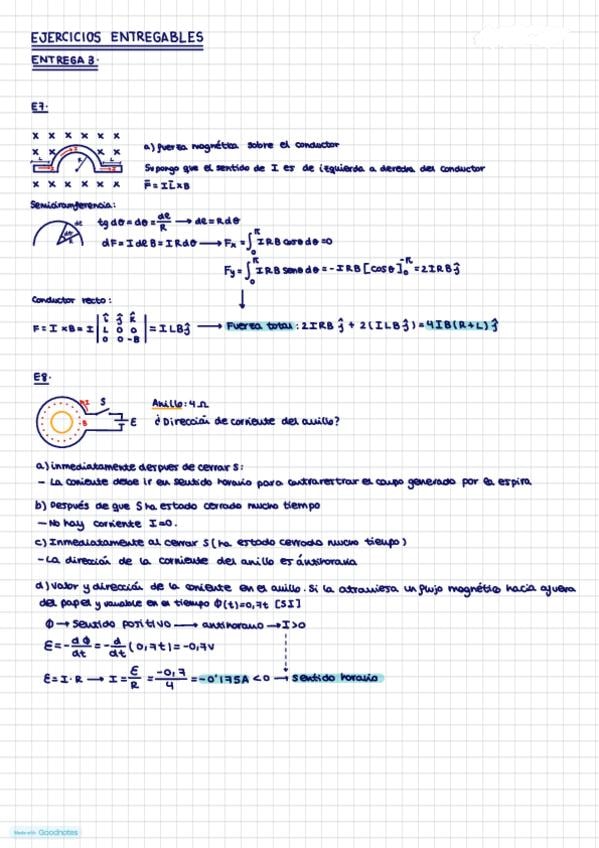 EJERCICIOS ENTREGABLES
ENTREGA 3.
E7.
x x x x x x
a) fuerza magnética sobre el conductor
Supongo que el sentido de I es de izquierda a derecha del conductor
x x x x x x
F̄ = I L̄ x B
Semicircunferencia:
tg dθ = dθ = dl/R → dl = R dθ
dF = I dl B = I R dθ → Fx = ∫₀^π IRB cosθ dθ = 0
Fy = ∫₀^π IRB senθ dθ = -IRB [cosθ]₀^π = 2IRB ĵ
Conductor recto:
F = I x B = I | î ĵ k̂ | = ILBĵ → Fuerza total: 2IRB ĵ + 2(ILBĵ) = 4IB(R+L) ĵ
L 0 0
0 0 -B
E8.
I S
B E
Anillo: 4Ω
¿Dirección de corriente del anillo?
a) inmediatamente despues de cerrar S:
- La corriente debe ir en sentido horario para contrarrestrar el campo generado por la espira
b) Después de que S ha estado cerrado mucho tiempo
- No hay corriente I=0.
c) Inmediatamente al cerrar S (ha estado cerrado mucho tiempo)
- La dirección de la corriente del anillo es antihoraria
d) Valor y dirección de la corriente en el anillo. Si la atraviesa un flujo magnético hacia afuera
del papel y variable en el tiempo Φ(t)=0,7t [SI]
Φ → Sentido positivo → antihorario → I>0
ε = - dΦ/dt = - d/dt (0,7t) = -0,7V
ε = I·R → I = ε/R = -0,7/4 = -0'175A < 0 → sentido horario
Made with Goodnotes